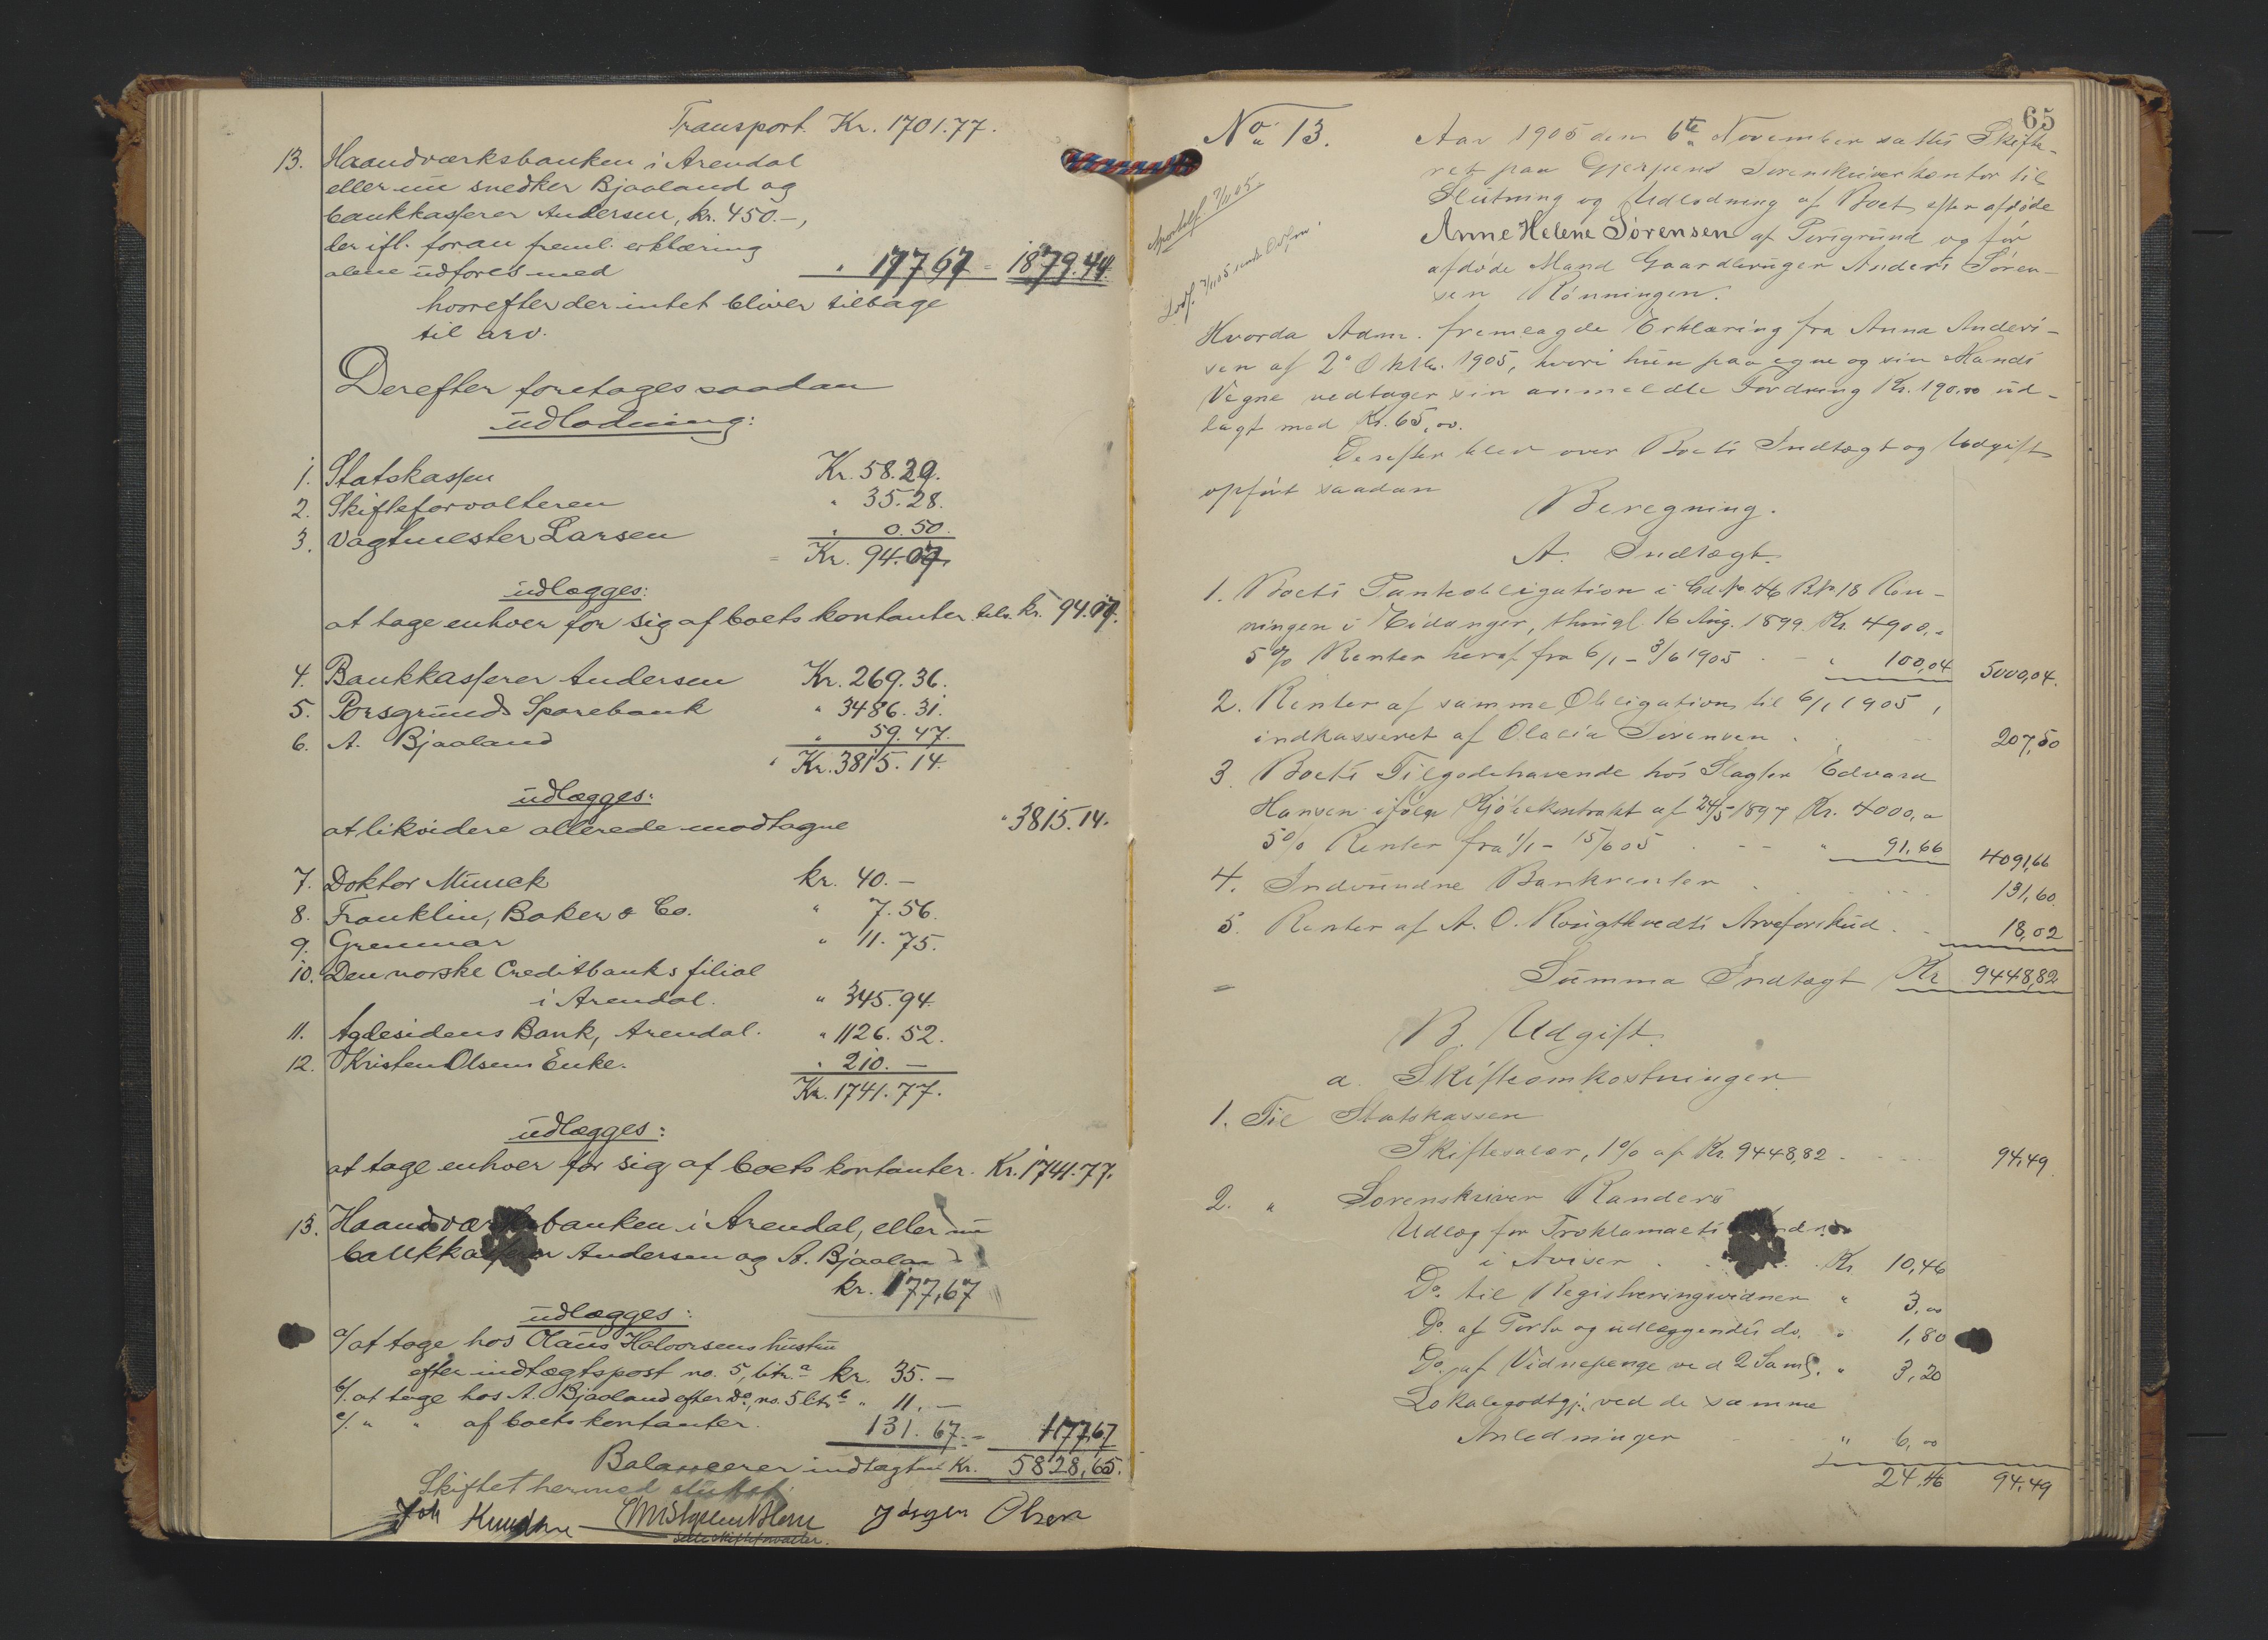 Transport. Kr. 1701.77.
13. Haandværksbanken i Arendal
eller nu snedker Bjaaland og
bankkasserer Andersen, kr. 450.–,
der ifl. foran freml. erklæring
alene udføres med " 177.67 = 1879.44.
hvorefter der intet bliver tilbage
til arv.
Derefter foretages saadan
udlodning:
1. Statskassen Kr. 58.29.
2. Skifteforvalteren " 35.28.
3. Vagtmester Larsen " 0.50.
= Kr. 94.07.
udlægges:
at tage enhver for sig af boets kontanter tils. kr. 94.07.
4. Bankkasserer Andersen Kr. 269.36.
5. Porsgrunds Sparebank " 3486.31.
6. A. Bjaaland " 59.47.
Kr. 3815.14.
udlægges:
at likvidere allerede modtagne " 3815.14.
7. Doktor Munck kr. 40.–
8. Franklin, Baker & Co. " 7.56.
9. Grenmar " 11.75.
10. Den norske Creditbanks filial
i Arendal. " 345.94.
11. Agdesidens Bank, Arendal. " 1126.52.
12. Kristen Olsens Enke. " 210.–
Kr. 1741.77.
udlægges:
at tage enhver for sig af boets kontanter. Kr. 1741.77.
13. Haandværksbanken i Arendal, eller nu
bankkasserer Andersen og A. Bjaaland
kr. 177,67
udlægges:
a/ at tage hos Olaus Halvorsens hustru
efter indtægtspost no. 5, litr. a kr. 35.–
b/. at tage hos A. Bjaaland efter Do, no. 5 litr b " 11.–
c/. " " af boets kontanter. 131.67. = 177,67
Balancerer indtægten Kr. 5828,65.
Skiftet hermed sluttet.
Joh Knudsen Olsen
Sette skifteforvalter.
65
No. 13.
Aar 1905 den 6te November sattes Skifte-
ret paa Gjerpens Sorenskriverkontor til
Slutning og Udlodning af Boet efter afdøde
Anne Helene Sørensen af Porsgrund og før
afdøde Mand Gaardbruger Anders Søren-
sen Rønningen.
Hvorda Adm. fremlagde Erklæring fra Anna Anders-
sen af 2. Oktbr. 1905, hvori hun paa egne og sin Mands
Vegne vedtager sin anmeldte Fordring Kr. 190.00 ud-
lagt med Kr. 65,00.
Derefter blev over Boets Indtægt og Udgift
opført saadan
Beregning.
A. Indtægt.
1. Boets Panteobligation i Gd No 46 B No 18 Røn-
ningen i Eidanger, thingl. 16 Aug. 1899. Kr. 4900,-
5% Renter heraf fra 6/1 - 3/6 1905 . - " 100,04 5000,04.
2. Renter af samme Obligation til 6/1 1905,
indkasseret af Olaia Sørensen . 207,50
3. Boets Tilgodehavende hos Slagter Edvard
Hansen ifølge Kjøbekontrakt af 24/5 1897 Kr. 4000,-
5% Renter fra 1/1 - 15/6 05 - - " 91,66 4091,66
4. Indvundne Bankrenter 131,60.
5. Renter af A. O. Rougtkvedts Arveforskud 18,02
Summa Indtægt Kr 9448,82
B. Udgift.
a. Skifteomkostninger.
1. Til Statskassen
Skiftesalær, 1% af Kr. 9448,82 94,49
2. " Sorenskriver Randers
Udlæg for Proklamaets
i Aviser . . . Kr 10,46
Do. til Registreringsvidner " 3,00
Do. af Porto og udlæggendes do. " 1,80
Do. af Vidnepenge ved 2 Saml. " 3,20
Lokalegodtgj. ved de samme
Anledninger " 6,00
24,46 94,49